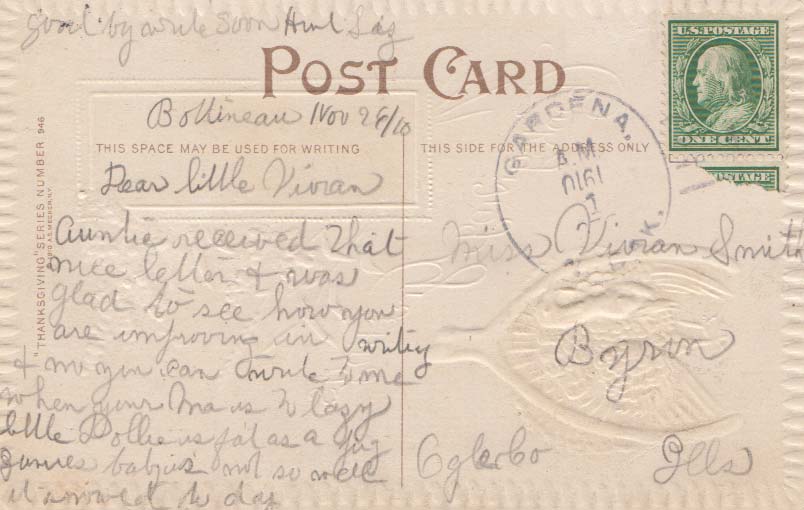 good by write soon Aunt
POST CARD
U.S. POSTAGE
ONE CENT
POSTAGE
"THANKSGIVING" SERIES NUMBER 946
Bottineau Nov 28/10
THIS SPACE MAY BE USED FOR WRITING
THIS SIDE FOR THE ADDRESS ONLY
GARDENA,
A.M.
Dear little Vivian
Auntie received that
nice letter & was
glad to see how you
are improving in writing
& you can write to me
when your Ma is to lazy
little Dollie is fat as a pig
babys not so well
it snowed to day
Miss Vivian Smith
Byron
Ogle Co Ills